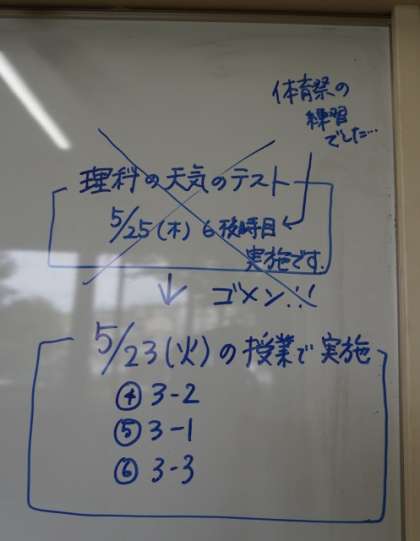 体育祭の
練習
でした…
理科の天気のテスト
5/25(木) 6校時目
実施です.
↓ ゴメン!!
5/23(火)の授業で実施
④ 3-2
⑤ 3-1
⑥ 3-3